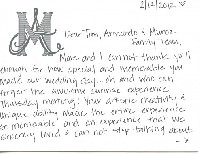 2/12/2012 ♡
Dear Tom, Armando & Munoz
Family Team,
Marc and I cannot thank you
enough for how special and memorable you
made our wedding day... oh and who can
forget the awesome sunrise experience
Thursday morning! Your artistic creativity &
unique ability made the entire experience
so memorable and an experience that we
sincerely loved & can not stop talking about.